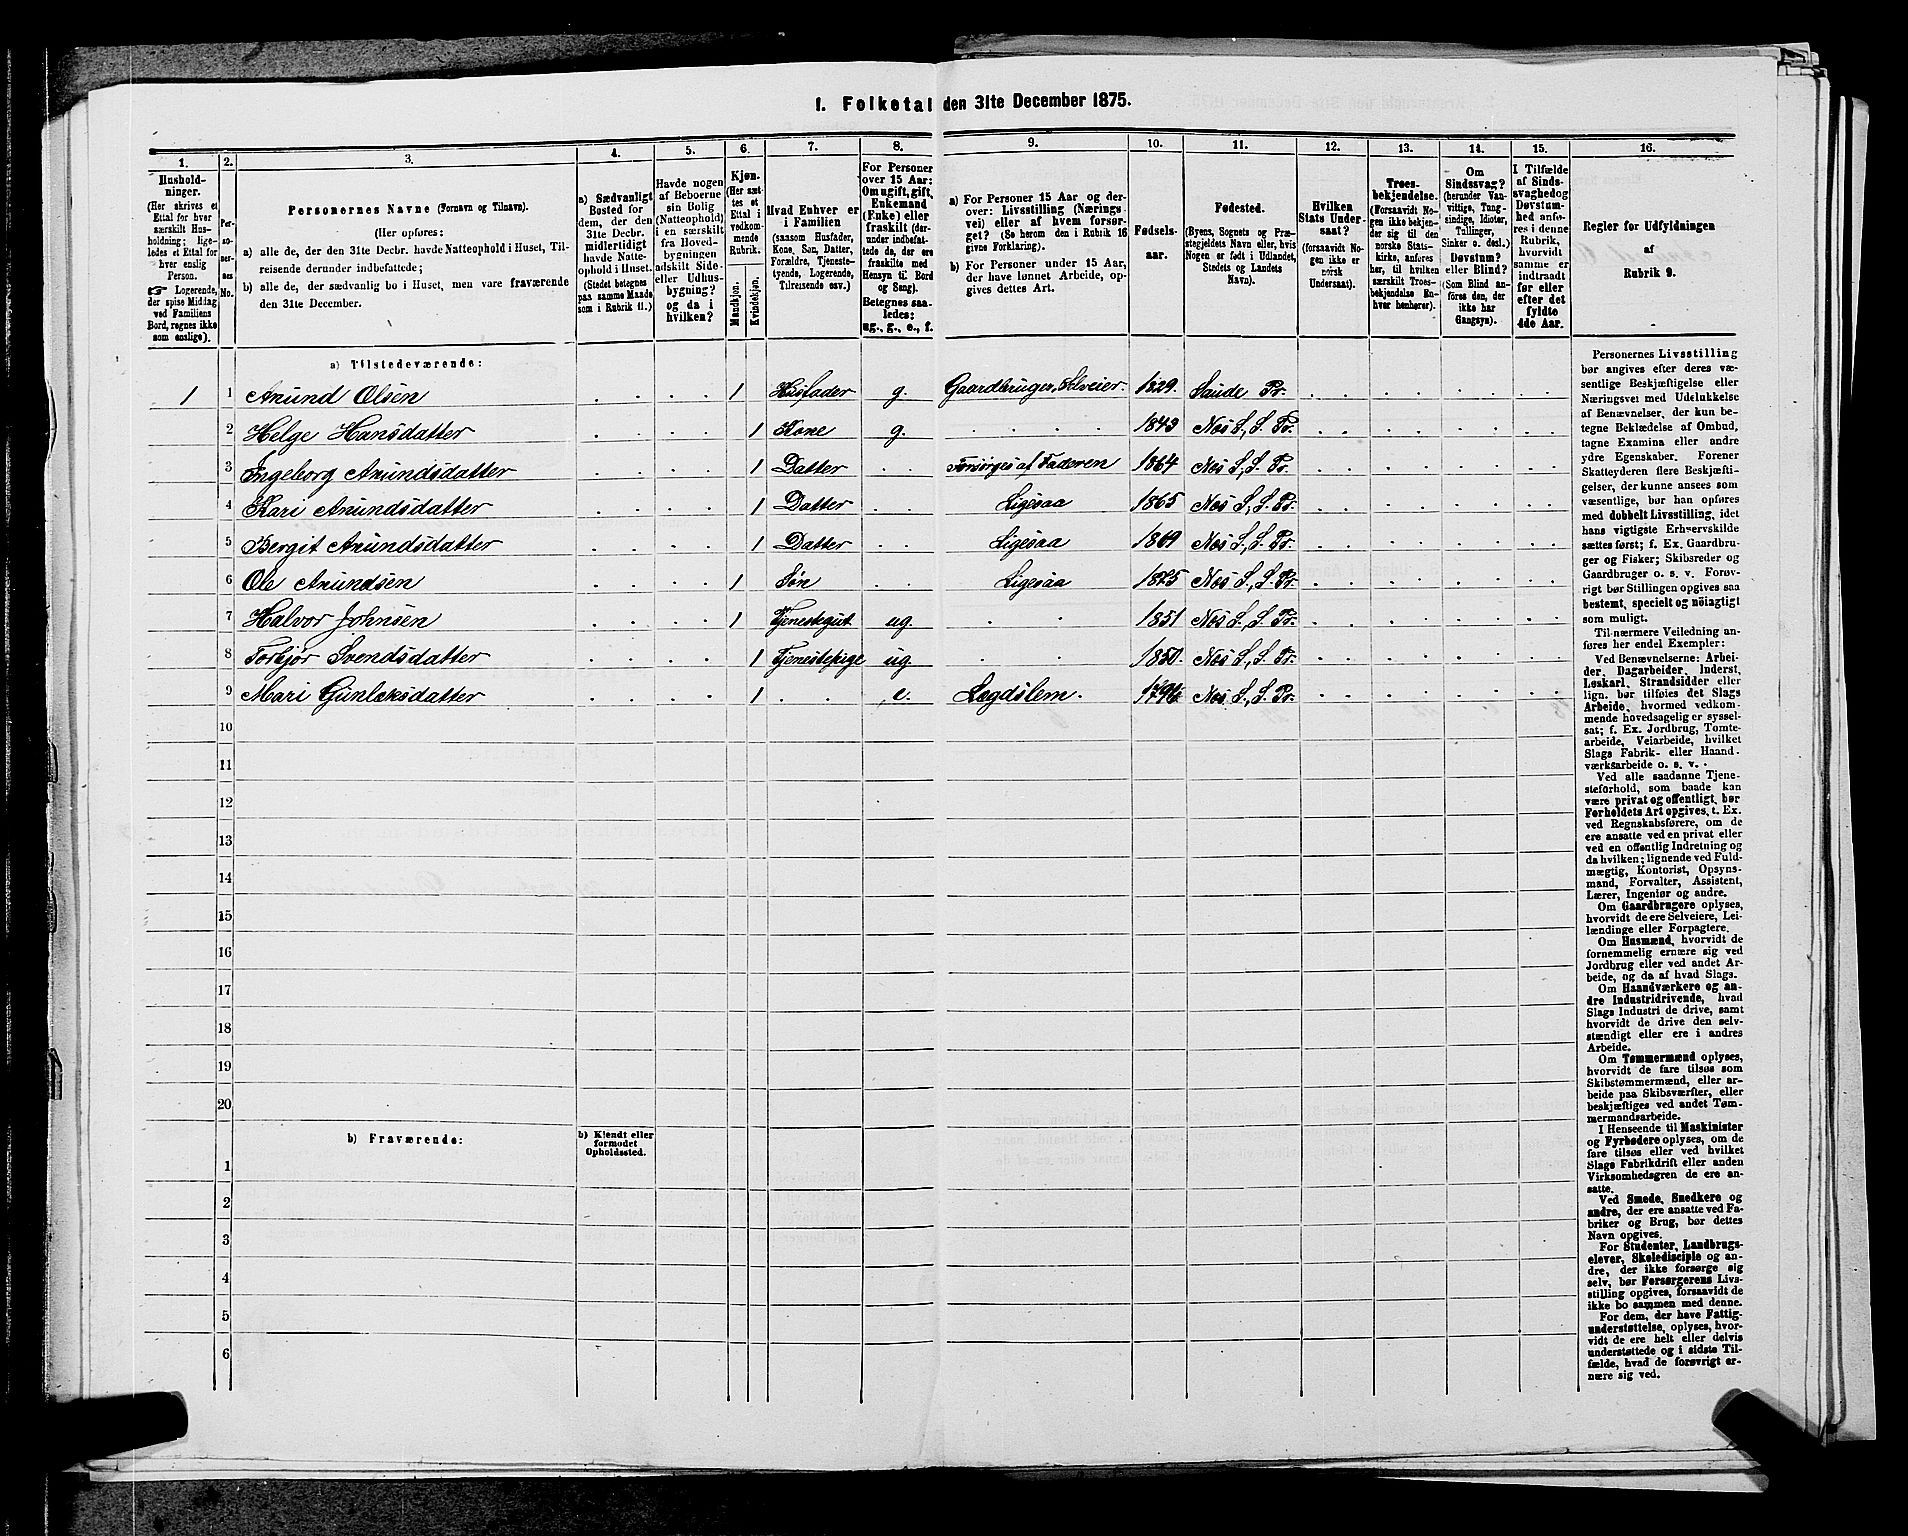 1. Folketal den 31te December 1875.
1. 2. 3. 4. 5. 6. 7. 8. 9. 10. 11. 12. 13. 14. 15. 16.
Hushold-
ninger.
(Her skrives et
Ettal for hver
særskilt Hus-
holdning; lige-
ledes et Ettal for
hver enslig
Person.
☞ Logerende,
der spise Middag
ved Familiens
Bord, regnes ikke
som enslige).
Per-
so-
ner-
nes
No.
Personernes Navne (Fornavn og Tilnavn).
(Her opføres:
a) alle de, der den 31te Decbr. havde Natteophold i Huset, Til-
reisende derunder indbefattede;
b) alle de, der sædvanlig bo i Huset, men vare fraværende
den 31te December.
a) Sædvanligt
Bosted for
dem, der den
31te Decbr.
midlertidigt
havde Natte-
ophold i Huset.
(Stedet betegnes
paa samme Maade
som i Rubrik 11.)
Havde nogen
af Beboerne
sin Bolig
(Natteophold)
i en særskilt
fra Hoved-
bygningen
adskilt Side-
eller Udhus-
bygning?
og da i
hvilken?
Kjøn.
(Her sæt-
tes et
Ettal i
vedkom-
mende
Rubrik.
Mandkjøn.
Kvindekjøn.
Hvad Enhver er
i Familien
(saasom Husfader,
Kone, Søn, Datter,
Forældre, Tjeneste-
tyende, Logerende,
Tilreisende osv.)
For Personer
over 15 Aar:
Om ugift, gift,
Enkemand
(Enke) eller
fraskilt (der-
under indbefat-
tede de, der ere
fraskilte med
Hensyn til Bord
og Seng).
Betegnes saa-
ledes:
ug., g., e., f.
a) For Personer 15 Aar og der-
over: Livsstilling (Nærings-
vei) eller af hvem forsør-
get? (Se herom den i Rubrik 16
givne Forklaring).
b) For Personer under 15 Aar,
der have lønnet Arbeide, op-
gives dettes Art.
Fødsels-
aar.
Fødested.
(Byens, Sognets og Præ-
stegjeldets Navn eller, hvis
Nogen er født i Udlandet,
Stedets og Landets
Navn).
Hvilken
Stats Under-
saat?
(forsaavidt No-
gen ikke er
norsk
Undersaat).
Troes-
bekjendelse.
(Forsaavidt No-
gen ikke bekjen-
der sig til den
norske Stats-
kirke, anføres
her, til hvilken
særskilt Troes-
bekjendelse En-
hver henhører).
Om
Sindssvag?
(herunder Van-
vittige, Tung-
sindige, Idioter,
Tullinger,
Sinker o. desl.)
Døvstum?
eller Blind?
(Som Blind an-
føres den, der
ikke har
Gangsyn).
I Tilfælde
af Sinds-
svaghed og
Døvstum-
hed anfø-
res i denne
Rubrik,
hvorvidt
samme er
indtraadt
før eller
efter det
fyldte
4de Aar.
Regler for Udfyldningen
af
Rubrik 9.
a) Tilstedeværende:
1 1 Anund Olsen 1 Husfader g. Gaardbruger, Selveier. 1829. Saude Pr.
2 Helge Hansdatter 1 Kone g. 1843 Nes S., S. Pr.
3 Ingeborg Anundsdatter 1 Datter Forsørges af Faderen 1864 Nes S., S. Pr.
4 Kari Anundsdatter 1 Datter Ligesaa 1865 Nes S., S. Pr.
5 Bergit Anundsdatter 1 Datter Ligesaa 1869 Nes S., S. Pr.
6 Ole Anundsen 1 Søn Ligesaa 1875 Nes S., S. Pr.
7 Halvor Johnsen 1 Tjenestegut ug. 1851 Nes S., S. Pr.
8 Torbjør Svendsdatter 1 Tjenestepige ug. 1850. Nes S., S. Pr.
9 Mari Gunleksdatter 1 e. Legdslem. 1796 Nes S., S. Pr.
10
11
12
13
14
15
16
17
18
19
20
b) Fraværende:
b) Kjendt eller
formodet
Opholdssted.
1
2
3
4
5
6
Personernes Livsstilling
bør angives efter deres væ-
sentlige Beskjæftigelse eller
Næringsvei med Udelukkelse
af Benævnelser, der kun be-
tegne Beklædelse af Ombud,
tagne Examina eller andre
ydre Egenskaber. Forener
Skatteyderen flere Beskjæfti-
gelser, der kunne ansees som
væsentlige, bør han opføres
med dobbelt Livsstilling, idet
hans vigtigste Erhvervskilde
sættes først; f. Ex. Gaardbru-
ger og Fisker; Skibsreder og
Gaardbruger o. s. v. Forøv-
rigt bør Stillingen opgives saa
bestemt, specielt og nöiagtigt
som muligt.
Til nærmere Veiledning an-
føres her endel Exempler:
Ved Benævnelserne: Arbei-
der, Dagarbeider, Inderst,
Løskarl, Strandsidder eller
lign. bør tilføies det Slags
Arbeide, hvormed vedkom-
mende hovedsagelig er syssel-
sat; f. Ex. Jordbrug, Tomte-
arbeide, Veiarbeide, hvilket
Slags Fabrik- eller Haand-
værksarbeide o. s. v.
Ved alle saadanne Tjene-
steforhold, som baade kan
være privat og offentligt, bør
Forholdets Art opgives, t. Ex.
ved Regnskabsførere, om de
ere ansatte ved en privat eller
ved en offentlig Indretning og
da hvilken; lignende ved Fuld-
mægtig, Kontorist, Opsyns-
mand, Forvalter, Assistent,
Lærer, Ingeniør og andre.
Om Gaardbrugere oplyses,
hvorvidt de ere Selveiere, Lei-
lændinge eller Forpagtere.
Om Husmænd, hvorvidt de
fornemmelig ernære sig ved
Jordbrug eller ved andet Ar-
beide, og da af hvad Slags.
Om Haandværkere og an-
dre Industridrivende, hvad
Slags Industri de drive, samt
hvorvidt de drive den selv-
stændigt eller ere i andres
Arbeide.
Om Tømmermænd oplyses,
hvorvidt de fare tilsøs som
Skibstømmermænd, eller ar-
beide paa Skibsværfter, eller
beskjæftiges ved andet Tøm-
mermandsarbeide.
I Henseende til Maskinister
og Fyrbødere oplyses, om de
fare tilsøs eller ved hvilket
Slags Fabrikdrift eller anden
Virksomhedsgren de ere an-
satte.
Ved Smede, Snedkere og
andre, der ere ansatte ved Fa-
briker og Brug, bør dettes
Navn opgives.
For Studenter, Landbrugs-
elever, Skoledisciple og an-
dre, der ikke forsørge sig
selv, bør Forsørgerens Livs-
stilling opgives, forsaavidt de
ikke bo sammen med denne.
For dem, der have Fattig-
understøttelse, oplyses, hvor-
vidt de ere helt eller delvis
understøttede og i sidste Til-
fælde, hvad de forøvrigt er-
nære sig ved.